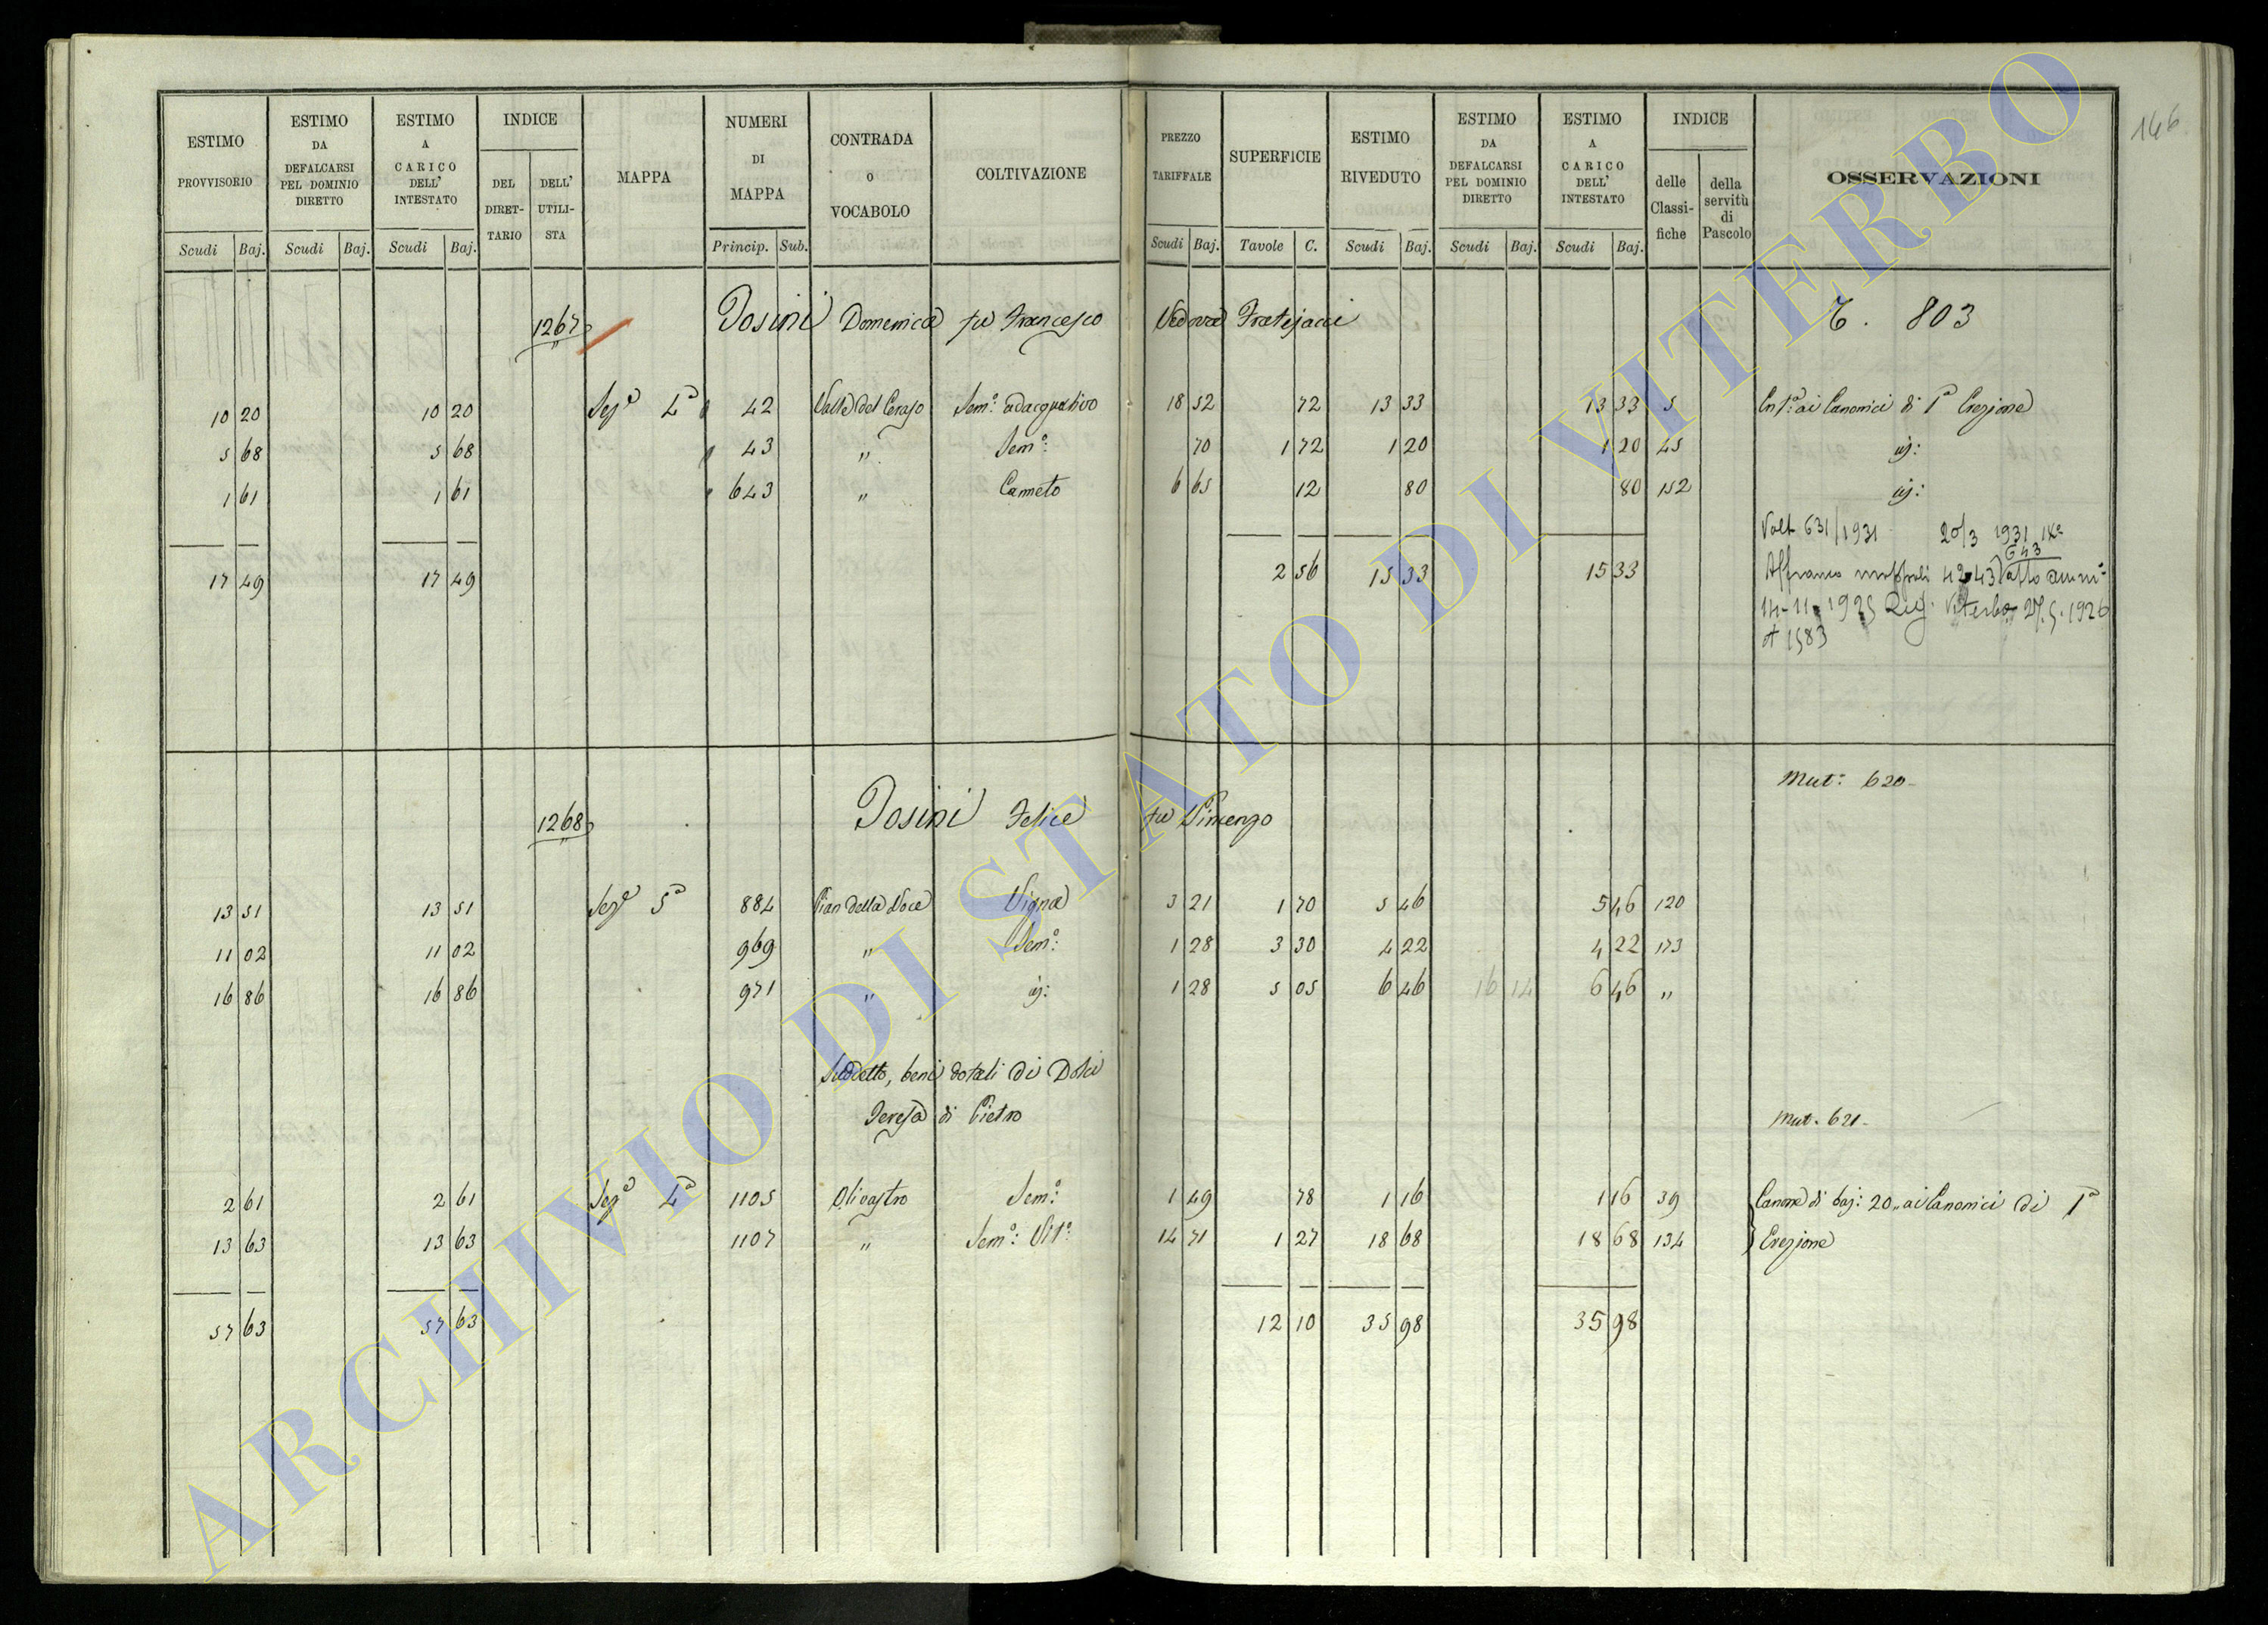 146
ESTIMO PROVVISORIO | ESTIMO DA DEFALCARSI PEL DOMINIO DIRETTO | ESTIMO A CARICO DELL' INTESTATO | INDICE | MAPPA | NUMERI DI MAPPA | CONTRADA O VOCABOLO | COLTIVAZIONE | PREZZO TARIFFALE | SUPERFICIE | ESTIMO RIVEDUTO | ESTIMO DA DEFALCARSI PEL DOMINIO DIRETTO | ESTIMO A CARICO DELL' INTESTATO | INDICE | OSSERVAZIONI
DEL DIRET-TARIO | DELL' UTILI-STA | delle Classi-fiche | della servitù di Pascolo
Scudi Baj. Scudi Baj. Scudi Baj. Princip. Sub. Scudi Baj. Tavole C. Scudi Baj. Scudi Baj. Scudi Baj.
1267 Tosini Domenica fu Francesco Vedova Fratejacci T. 803
10 20 10 20 Sezᵉ 4ª 42 Valle del Ceraso Semº: adacquativo 18 52 72 13 33 13 33 5 Enfª: ai Canonici di 1ª Erezione
5 68 5 68 43 " Semº: 70 1 72 1 20 1 20 45 id:
1 61 1 61 643 " Canneto 6 65 12 80 80 152 id:
Volt 631/1931 20/3 1931 IXº
17 49 17 49 2 56 15 33 15 33
643
Affranco mappali 42 43 atto amm:
14-11-1925 Reg. Viterbo 27.5.1926
1583
Mut: 620
1268 Tosini Felice fu Vincenzo
13 51 13 51 Sezᵉ 5ª 884 Pian della Noce Vigna 3 21 1 70 5 46 5 46 120
11 02 11 02 969 " Semº: 1 28 3 30 4 22 4 22 173
16 86 16 86 971 " id: 1 28 5 05 6 46 16 14 6 46 "
Suddetto, beni dotali di Dolci
Teresa di Pietro Mut. 621
2 61 2 61 Sezᵉ 4ª 1105 Olivastro Semº: 1 49 78 1 16 1 16 39 Canone di baj: 20 ai Canonici di 1ª
13 63 13 63 1107 " Semº: Vitº: 14 71 1 27 18 68 18 68 134 Erezione
57 63 57 63 12 10 35 98 35 98
ARCHIVIO DI STATO DI VITERBO